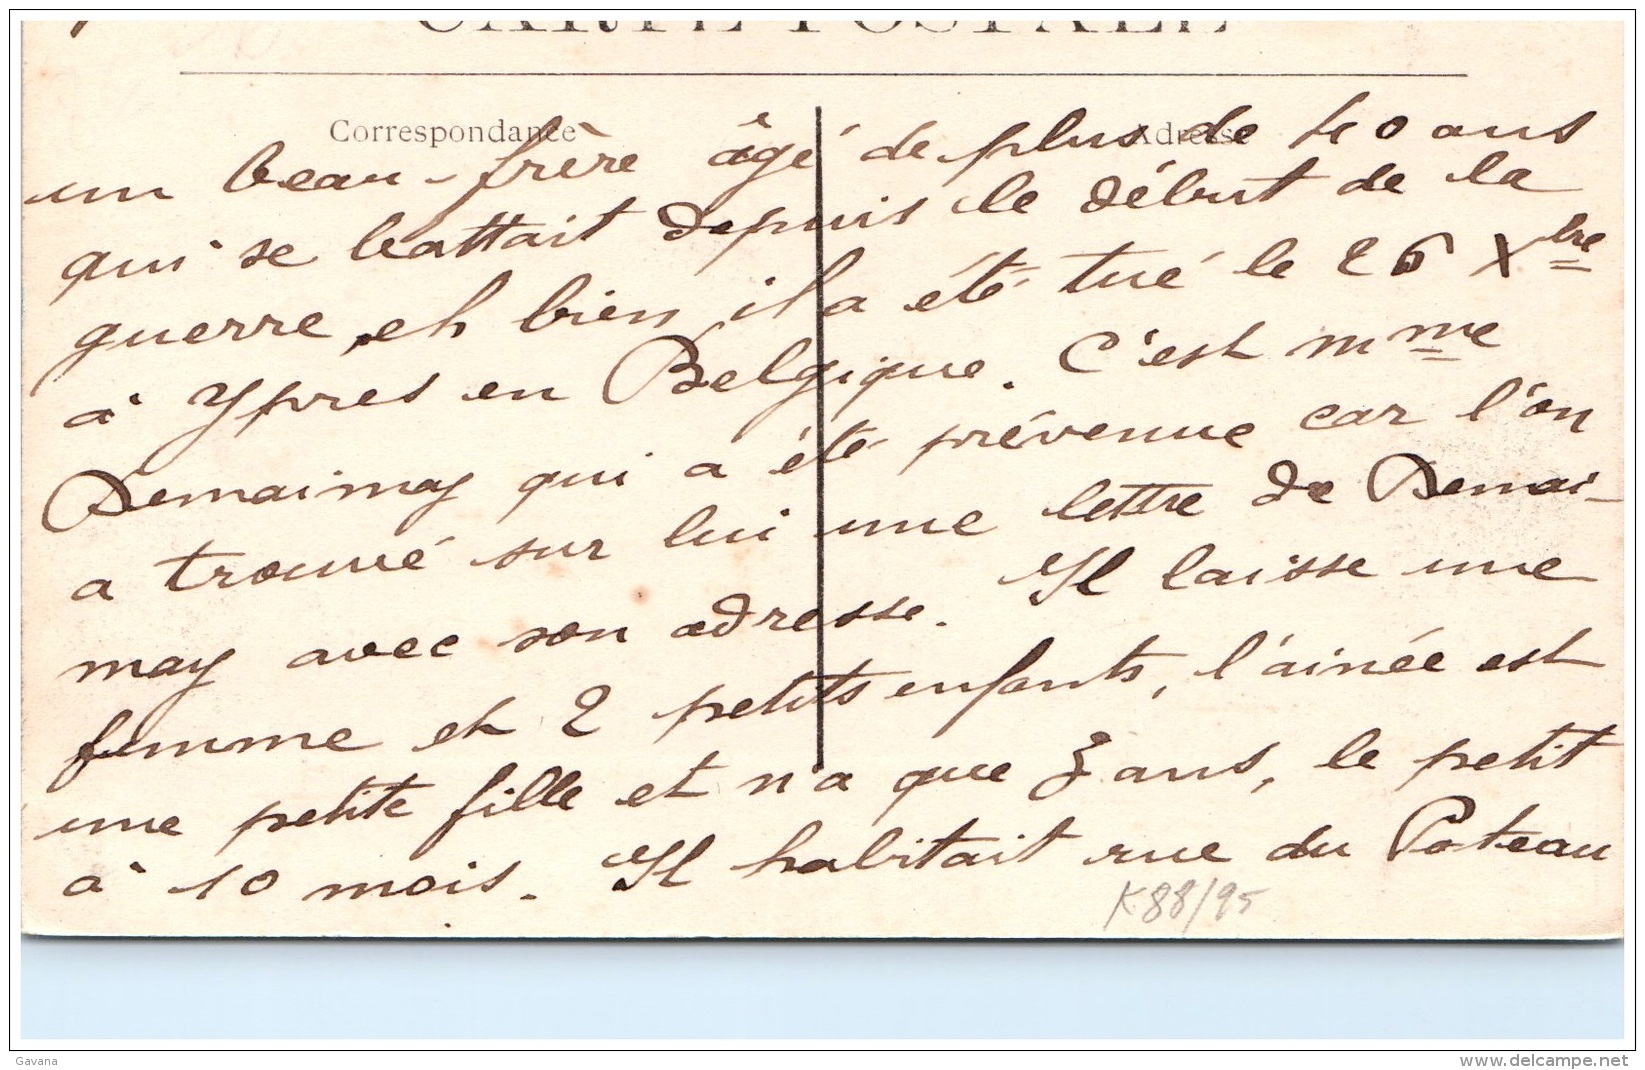 CARTE POSTALE
Correspondance
Adresse
un beau-frère âgé de plus de 40 ans
qui se battait depuis le début de la
guerre, eh bien, il a été tué le 26 Xbre
à Ypres en Belgique. C'est Mme
Demaimay qui a été prévenue car l'on
a trouvé sur lui une lettre de Demai-
may avec son adresse. Il laisse une
femme et 2 petits enfants, l'ainée est
une petite fille et n'a que 3 ans, le petit
à 10 mois. Il habitait rue du Poteau
K88/95
Gavana
www.delcampe.net